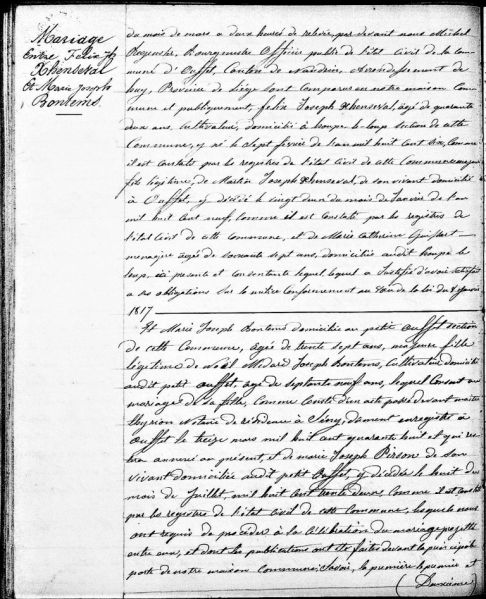 Mariage
Entre Felix Jh
Xhenseval
Et Marie Joseph
Bontems
du mois de mars a deux heures de relevée, par devant nous Michel
Bourgmestre Officier public de l'état Civil de la com
mune d'Ouffet, Canton de Nandrin, Arrondissement de
huy, Province de Liége sont Comparus en notre maison Com
mune et publiquement, felix Joseph Xhenseval, agé de quarante
deux ans, Cultivateur, domicilié à hompa le loup section de cette
Commune, y né le Sept fevrier de l'an mil huit cent Six, Comme
il est Constaté par les registres de l'état Civil de cette Commune
fils légitime, de Martin Joseph Xhenseval, de son vivant domicilié
à Ouffet, y décédé le vingt deux du mois de Janvier de l'an
mil huit Cent neuf, Comme il est Constaté par les registres de
l'état Civil de cette Commune, et de Marie Catherine
menagere agée de soixante sept ans, domiciliée audit hompa le
loup, ici présente et Consentante lequel a Justifié d'avoir satisfait
a ses obligations Sur la milice Conformement au de la loi du 8 Janvier
1817
Et Marie Joseph Bontems domiciliée au petit Ouffet section
de cette Commune, agée de trente sept ans, majeure fille
légitime de Noël Medard Joseph Bontems, Cultivateur domicilié
audit petit Ouffet, agé de Septante neuf ans, lequel Consent au
mariage de sa fille, Comme Conste d'un acte passé devant maitre
notaire de résidence à Seny, dument enregistré à
Ouffet le treize mars mil huit cent quarante huit et qui res
tera annexé au présent, et de marie Joseph Pirson de son
vivant domiciliée audit petit Ouffet, y décédée le huit du
mois de Juillet, mil huit cent trente deux Comme il est Constaté
par les registres de l'état Civil de cette Commune, lesquels nous
ont requis de procéder à la Célébration du mariage projetté
entre eux, et dont les publications ont été faites devant la principale
porte de notre maison Commune Savoir, la premiere le premier et
(Deuxieme)